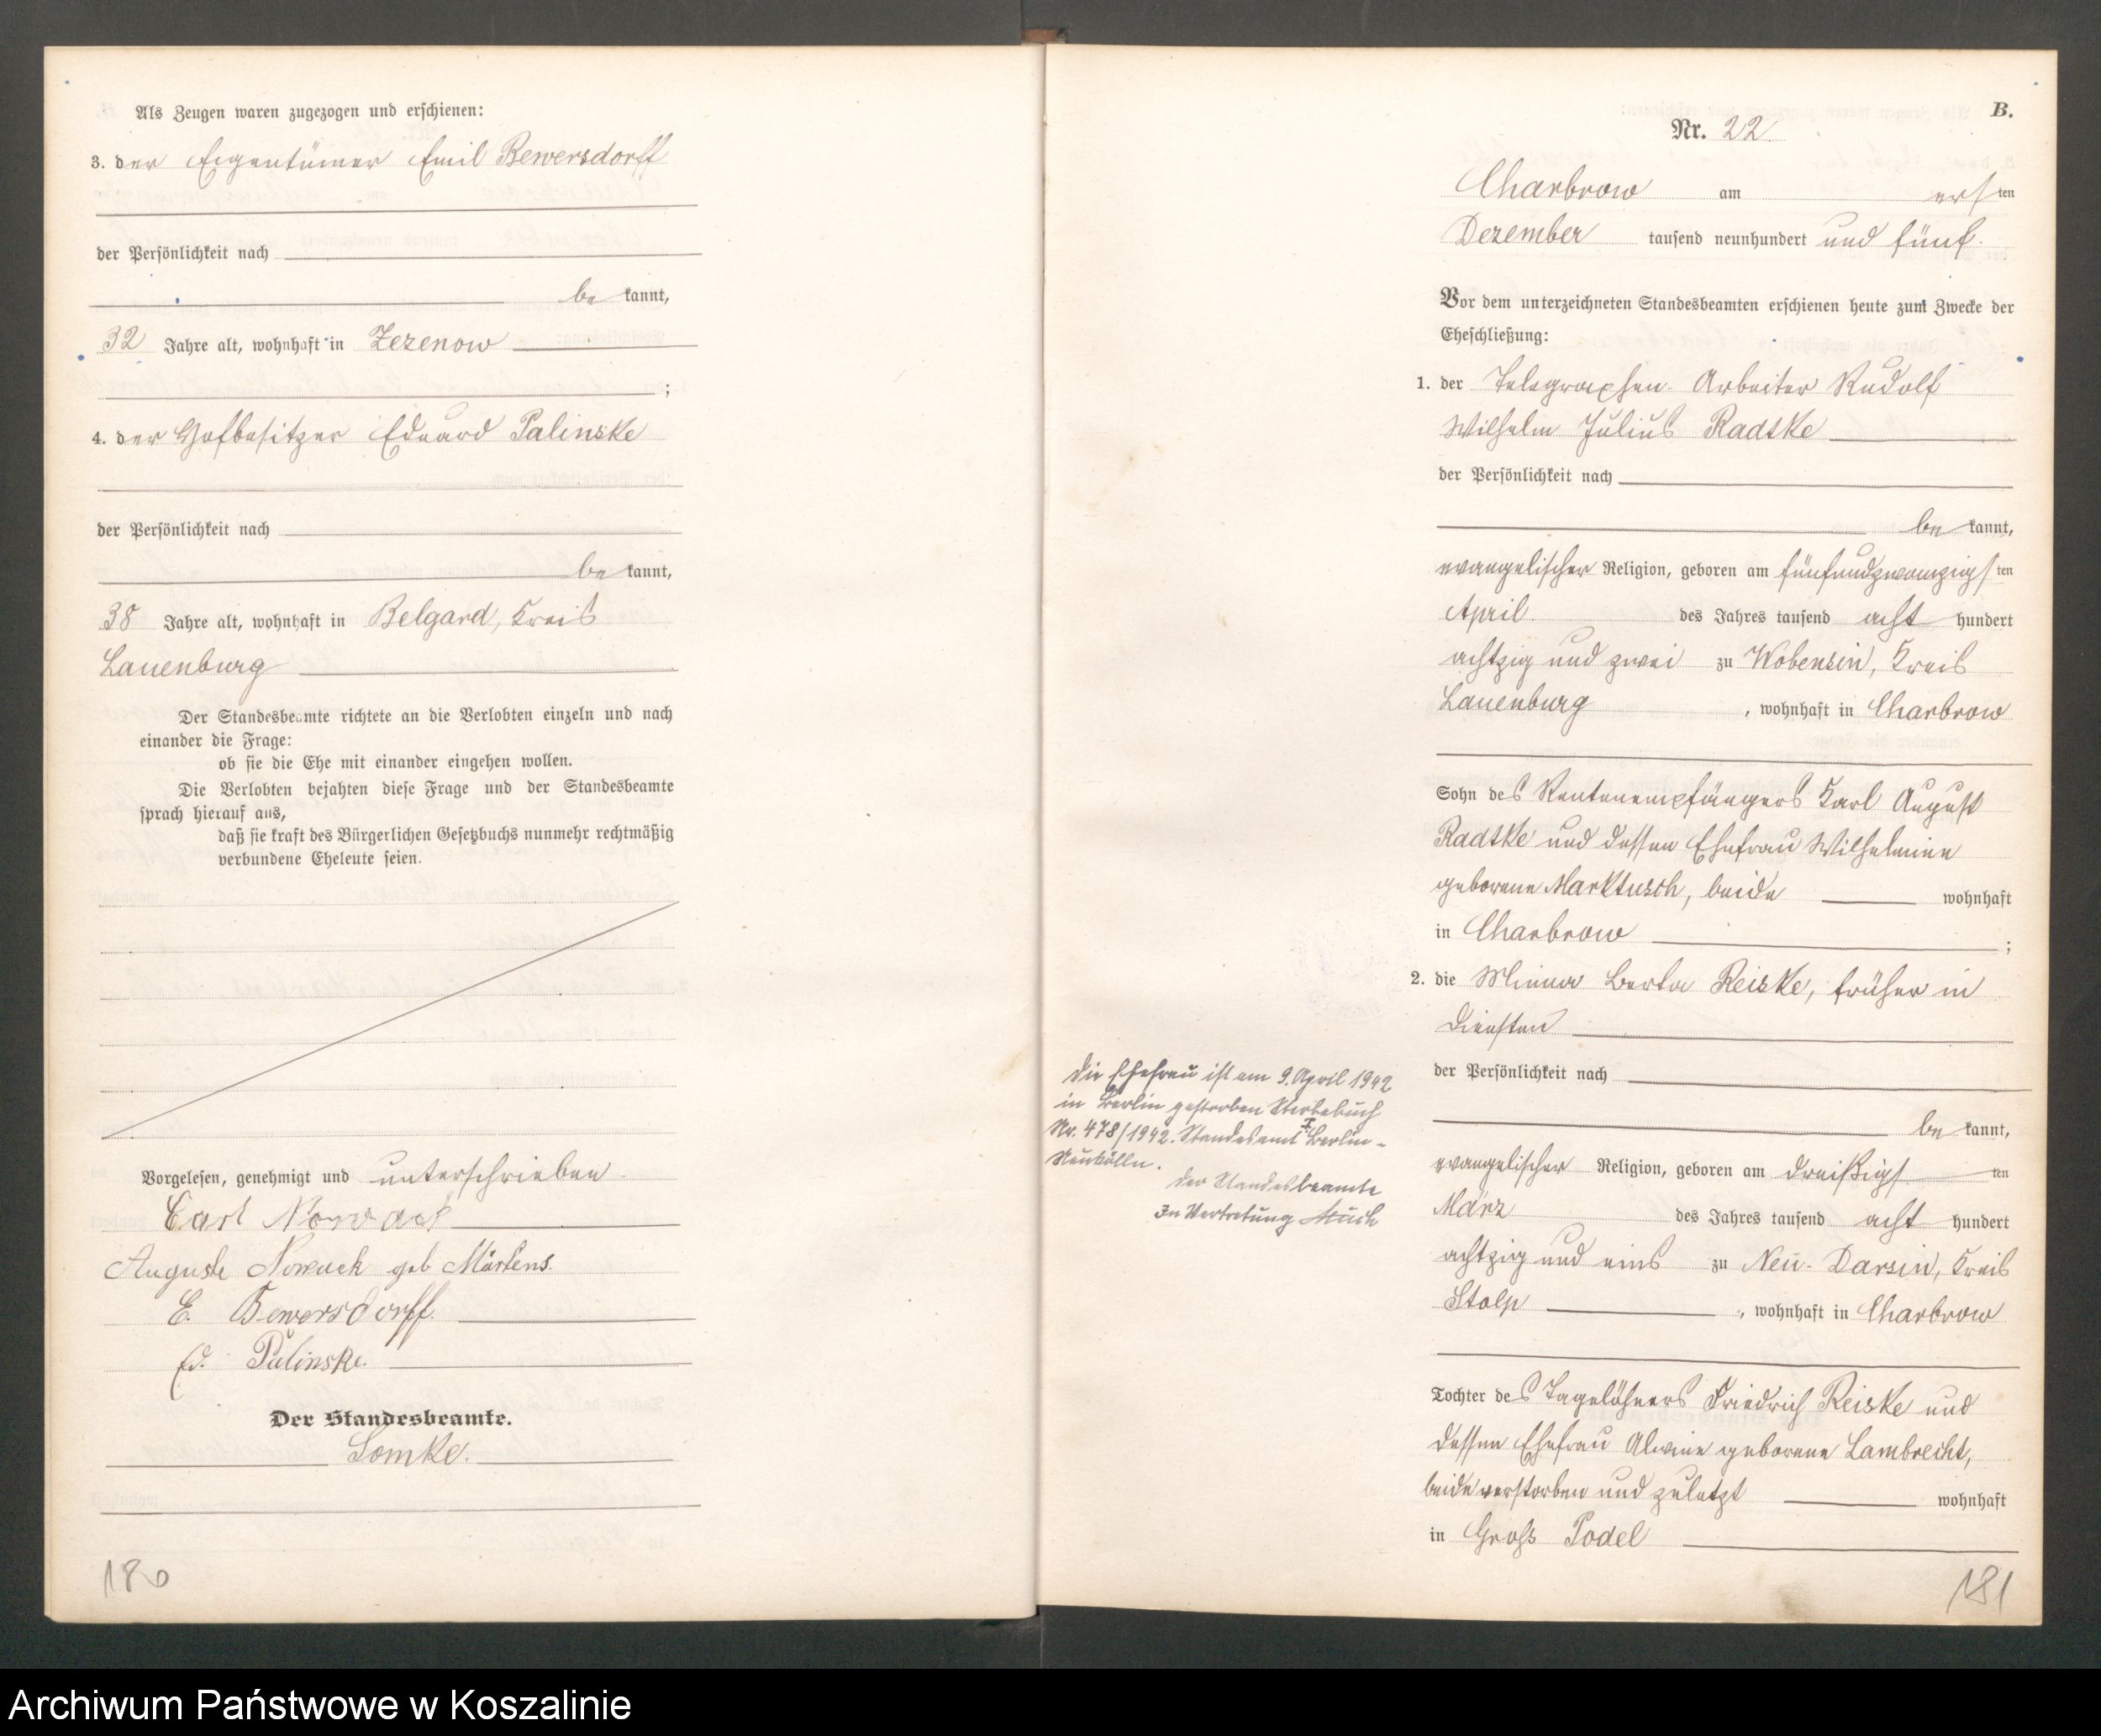 Als Zeugen waren zugezogen und erschienen:
3. der Eigentümer Emil Bewersdorff
der Persönlichkeit nach
be kannt,
32 Jahre alt, wohnhaft in Zezenow
;
4. der Hofbesitzer Eduard Palinske
der Persönlichkeit nach
be kannt,
38 Jahre alt, wohnhaft in Belgard, Kreis
Lauenburg
Der Standesbeamte richtete an die Verlobten einzeln und nach
einander die Frage:
ob sie die Ehe mit einander eingehen wollen.
Die Verlobten bejahten diese Frage und der Standesbeamte
sprach hierauf aus,
daß sie kraft des Bürgerlichen Gesetzbuchs nunmehr rechtmäßig
verbundene Eheleute seien.
Vorgelesen, genehmigt und unterschrieben
Carl Nowack
Auguste Nowack geb Märtens.
E. Bewersdorff.
Ed. Palinske.
Der Standesbeamte.
Lomke.
180
B.
Nr. 22.
Charbrow am ersten
Dezember tausend neunhundert und fünf.
Vor dem unterzeichneten Standesbeamten erschienen heute zum Zwecke der
Eheschließung:
1. der Telegraphen-Arbeiter Rudolf
Wilhelm Julius Radtke
der Persönlichkeit nach
be kannt,
evangelischer Religion, geboren am fünfundzwanzigsten
April des Jahres tausend acht hundert
achtzig und zwei zu Wobensin, Kreis
Lauenburg, wohnhaft in Charbrow
Sohn des Rentenempfängers Karl August
Radtke und dessen Ehefrau Wilhelmine
geborene Marktusch, beide wohnhaft
in Charbrow ;
2. die Minna Berta Reiske, früher in
Diensten
der Persönlichkeit nach
be kannt,
evangelischer Religion, geboren am dreißigsten
März des Jahres tausend acht hundert
achtzig und eins zu Neu-Darsin, Kreis
Stolp, wohnhaft in Charbrow
Tochter des Tagelöhners Friedrich Reiske und
dessen Ehefrau Alwine geborene Lambrecht,
beide verstorben und zuletzt wohnhaft
in Groß Podel
Die Ehefrau ist am 9. April 1942
in Berlin gestorben Sterbebuch
Nr. 478/1942. Standesamt I Berlin-
Neukölln.
Der Standesbeamte
In Vertretung
181
Archiwum Państwowe w Koszalinie